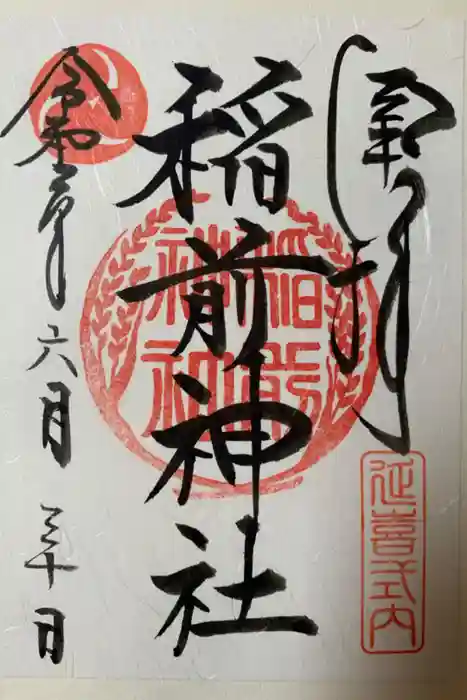 奉拝
延喜式内
稲前神社
稲前
神社
令和年六月三十日